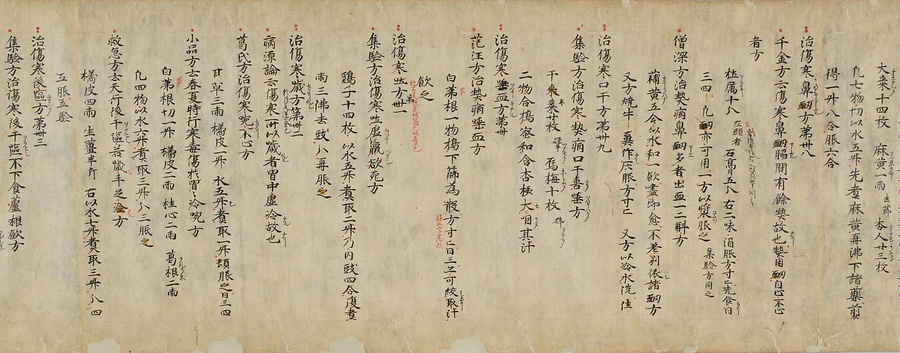 大棗十四枚 麻黄一兩 杏人廿三枚
凡七物切以水五升先煮麻黄再沸下諸藥煎
得一升八合服六合
治傷寒鼻衄方第卅八
千金方云傷寒鼻衄腸間有餘熱故也熱因衄自止不止
者方
牡厲十八 左顧者 石膏五八 右二味 酒服方寸匕先食日
三四 凡衄亦可用一方以漿服之 集験方同之
僧深方治熱病鼻衄多者出血一二斛方
蒲黄五合以水和一飲盡即愈不差別依諸衄方
又方燒牛 糞作灰服方寸匕 又方以冷水洗佳
治傷寒口干方第卅九
集験方治傷寒熱病口干喜唾方
干棗廿枚 烏梅十枚
二物合搗蜜和含杏核大咽其汁
治傷寒唾血方第卌
范汪方治熱病唾血方
白茅根一物搗下篩為散方寸匕日三亦可絞取汁
飲之
治傷寒吐方卌一
集験方治傷寒吐虚羸欲死方
鷄子十四枚 以水五升煮取二升乃内豉四合復煮
兩三沸去豉八再服之
治傷寒噦方卌二
病源論云傷寒所以噦者胃中虚冷故也
葛氏方治傷寒噦不止方
甘草三兩 橘皮一升 水五升煮取一升頓服之日三四
小品方云春夏時行寒毒傷於胃冷噦方
白茅根切一升 橘皮二兩 桂心二兩 葛根二兩
凡四物以水六升煮取三升八三服之
救急方云天行後干嘔若噦手足冷方
橘皮四兩 生薑半斤 右以水七升煮取三升八四
五服立驗
治傷寒後嘔方第卌三
集驗方治傷寒後嘔不下食蘆根飲方